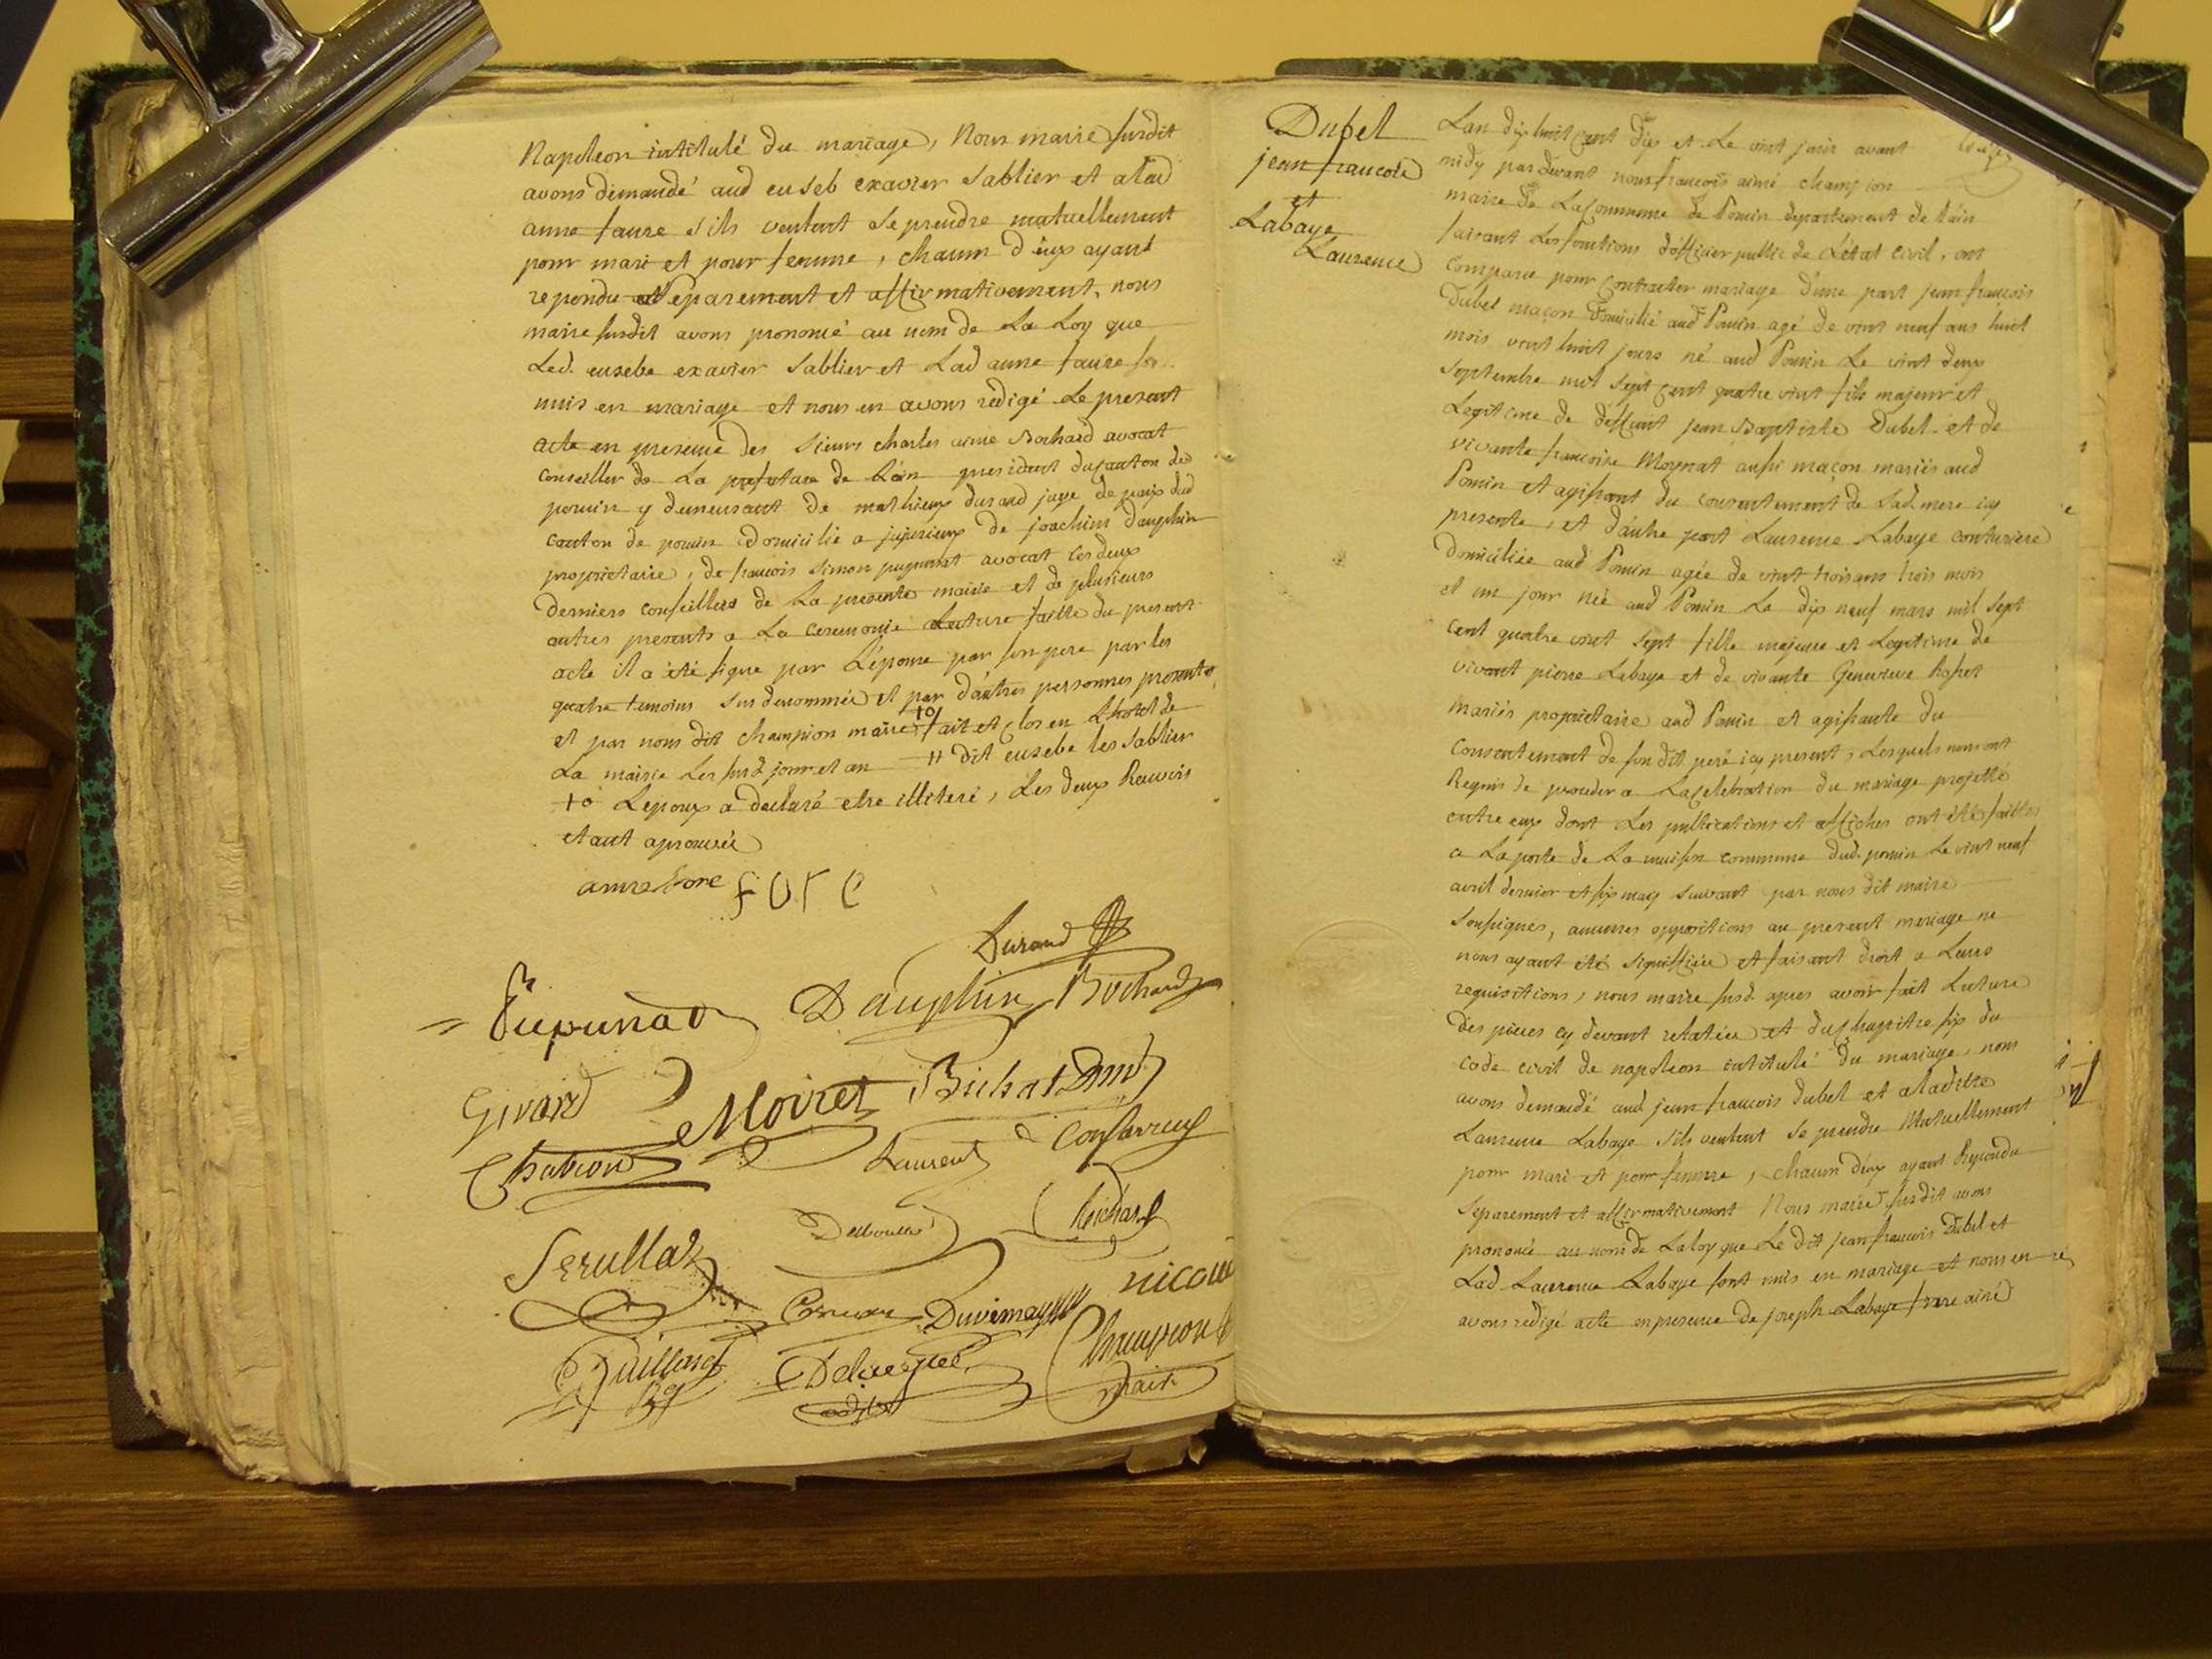 Napoleon intitulé du mariage, Nous maire susdit
avons demandé aud euseb exavier Sablier et a lad
anne faure s'ils veulent se prendre mutuellement
pour mari et pour femme, chacun d'eux ayant
repondu separement et affirmativement, nous
maire susdit avons prononcé au nom de La Loy que
Led. eusebe exavier Sablier et Lad anne faure
unis en mariage et nous en avons redigé Le present
acte en presence des Sieurs charles aimé Bochard avocat
conseiller de La prefecture de L'ain president du canton de
poncin y demeurant de mathieux durand juge de paix dud
canton de poncin domicilié a jujurieux de joachim dauphin
propriétaire, de francois Simon avocat ces deux
derniers conseillers de La presente mairie et de plusieurs
autres presents a La ceremonie Lecture faitte du present
acte il a été signe par L'épouse par son pere par les
quatre temoins susdenommés et par d'autres personnes presentes
et par nous dit champion maire +o/ fait et clos en L'hotel de
La mairie Les susd jour et an # dit eusebe les Sablier
+o Lepoux a declaré etre illiteré, Les deux Renvois
etant aprouvés
anne fore fore
Durand
Dauphin Bochard
Girard Moiret Bichat
Chatron Laurent
Serullaz Richard
Nicoud
Champion
maire
Dubel
jean francois
et
Labaye
Laurence
Lan dix huit cent dix et Le vint juin avant
midy pardevant nous francois aimé champion
maire de La Commune de Poncin departement de L'ain
faisant Les fonctions d'officier public de L'état civil, ont
comparu pour contracter mariage d'une part jean francois
Dubel maçon domicilié aud Poncin agé de vint neuf ans huit
mois vint huit jours né aud Poncin Le vint deux
septembre mil sept cent quatre vint fils majeur et
Legitime de deffunt jean Baptiste Dubel et de
vivante francoise Moynat aussi maçon mariés aud
Poncin et agissant du consentement de Lad. mere icy
presente, et d'autre part Laurence Labaye couturiere
domiciliée aud Poncin agée de vint trois ans trois mois
et un jour née aud Poncin Le dix neuf mars mil sept
cent quatre vint sept fille majeure et Legitime de
vivant pierre Labaye et de vivante Genevieve
mariés propriétaire aud Poncin et agissante du
consentement de son dit peré icy present, Lesquels nous ont
Requis de proceder a La celebration du mariage projetté
entre eux dont Les publications et affiches ont été faittes
a La porte de La maison commune dud. poncin Le vint neuf
avril dernier et six may suivant par nous dit maire
soussignés, aucunes oppositions au present mariage ne
nous ayant été signiffiée et faisant droit a Leurs
requisitions, nous maire susd. apres avoir fait Lecture
des pièces cy devant relatées et du chapitre six du
code civil de napoleon intitulé du mariage, nous
avons demandé aud. jean francois dubel et a laditte
Laurence Labaye s'ils veulent se prendre Mutuellement
pour mari et pour femme, chacun d'eux ayant Repondu
separement et affirmativement Nous maire susdit avons
prononcé au nom de La loy que Le dit jean francois Dubel et
Lad Laurence Labaye sont unis en mariage et nous en
avons redigé acte en presence de joseph Labaye frere ainé